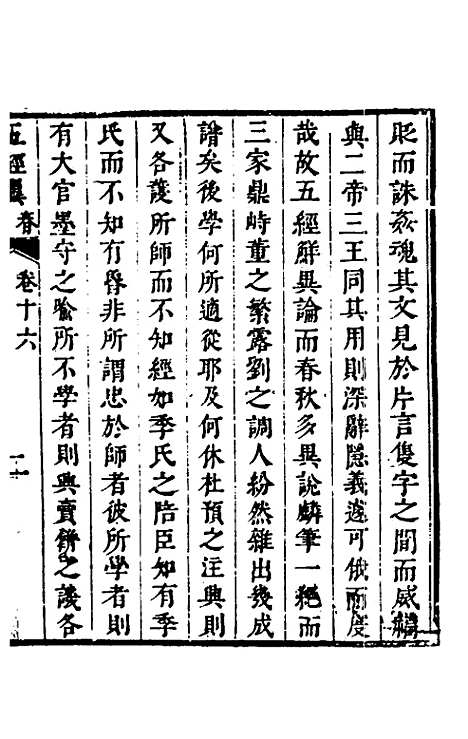 耴而誅姦魂其文見於片言隻字之間而威福
與二帝三王同其用則深辭隱義遽可俄而度
哉故五經鮮異論而春秋多異說麟筆一絕而
三家鼎峙董之繁露劉之調人紛然雜出幾成
譜矣後學何所適從耶及何休杜預之注興則
又各護所師而不知經如季氏之陪臣知有季
氏而不知有昏非所謂忠於師者彼所學者則
有大官墨守之喻所不學者則興賣餅之譏各
五經翼 春 卷十六